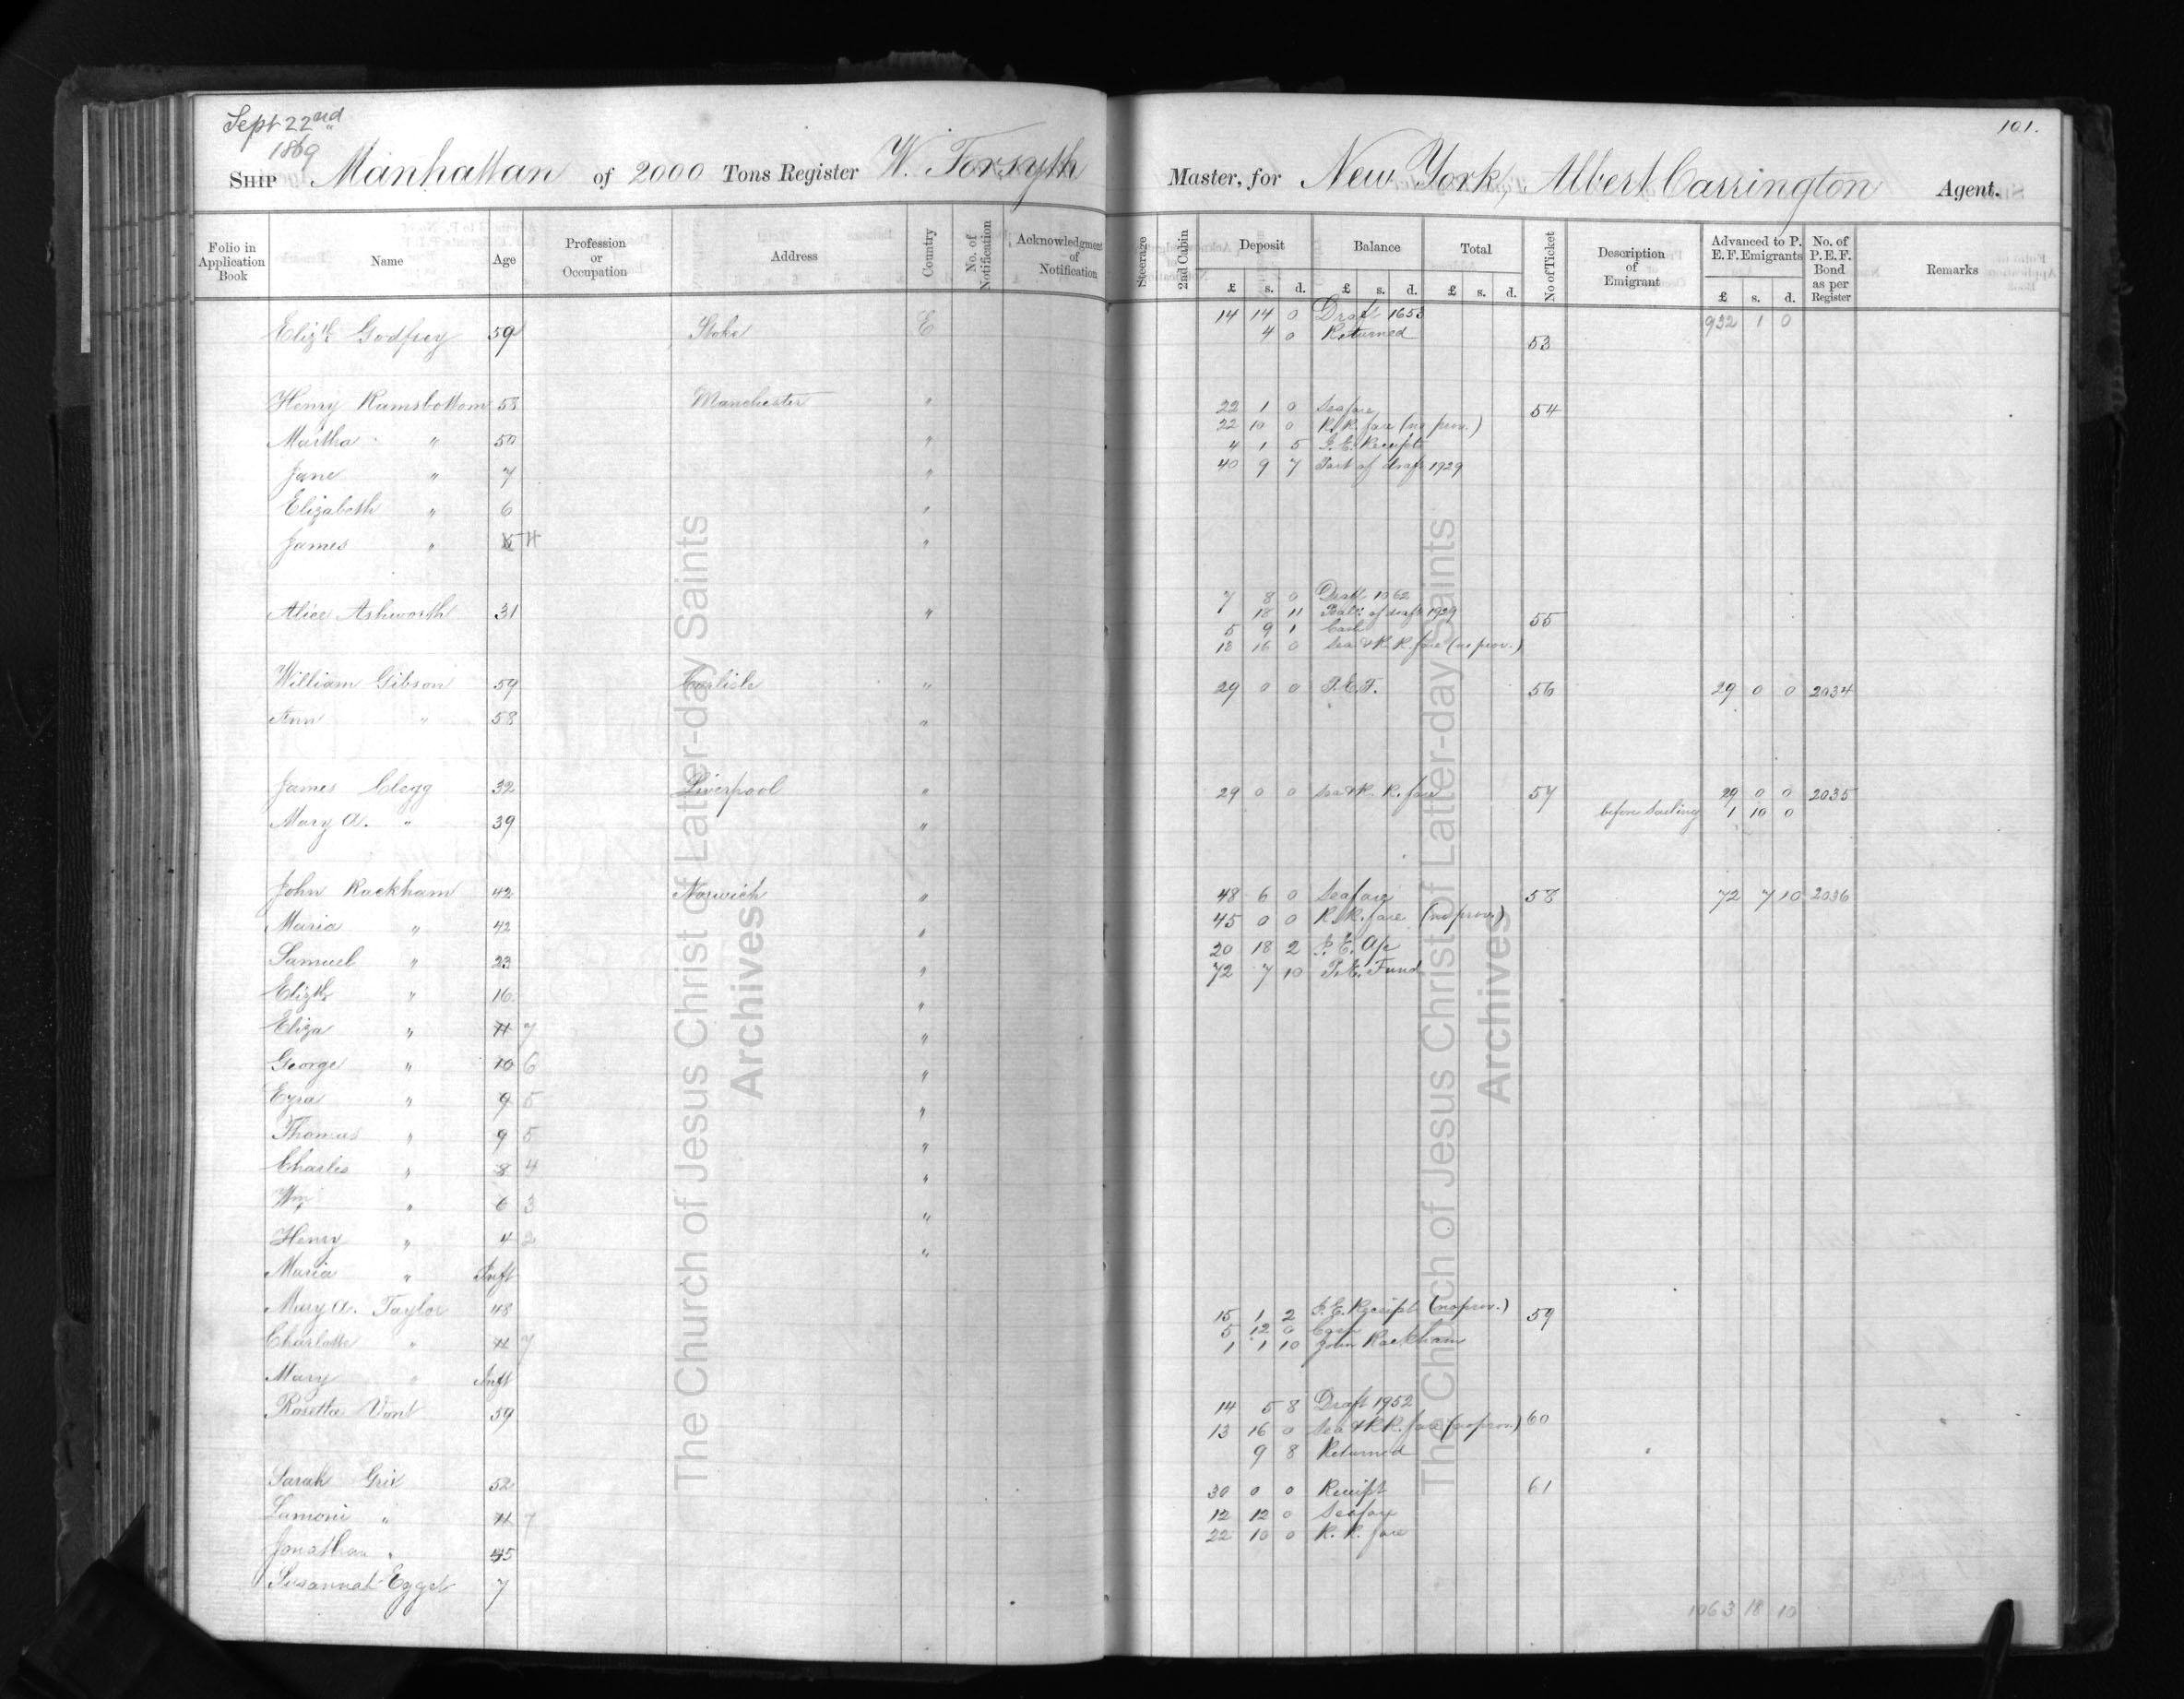 Sept 22nd
1869
101.
SHIP Manhattan of 2000 Tons Register W. Forsyth Master, for New York, Albert Carrington Agent.
Folio in Application Book Name Age Profession or Occupation Address Country No. of Notification Acknowledgment of Notification Steerage 2nd Cabin Deposit Balance Total No of Ticket Description of Emigrant Advanced to P. E. F. Emigrants No. of P. E. F. Bond as per Register Remarks
£ s. d. £ s. d. £ s. d. £ s. d.
14 14 0 Draft 1653 932 1 0
Elizth Godfrey 59 Stoke E 4 0 Returned 53
Henry Ramsbottom 58 Manchester " 22 1 0 Seafare 54
22 10 0 R. R. fare (no prov.)
Martha " 50 " 4 1 5 P. E. Receipts
Jane " 7 " 40 9 7 Part of draft 1929
Elizabeth " 6 "
James " 5 4 "
7 8 0 Draft 1062
Alice Ashworth 31 " 18 11 Balc. of draft 1929 55
5 9 1 Cash
13 16 0 Sea & R. R. fare (no prov.)
William Gibson 59 Carlisle " 29 0 0 P. E. F. 56 29 0 0 2034
Ann " 58 "
James Clegg 32 Liverpool " 29 0 0 Sea & R. R. fare 57 29 0 0 2035
Mary A. " 39 " before Sailing 1 10 0
John Rackham 42 Norwich " 48 6 0 Seafare 58 72 7 10 2036
Maria " 42 " 45 0 0 R. R. fare (no prov.)
Samuel " 23 " 20 18 2 P. E. A/c
72 7 10 P. E. Fund
Elizth " 16 "
Eliza " 11 7 "
George " 10 6 "
Ezra " 9 5 "
Thomas " 9 5 "
Charles " 8 4 "
Wm " 6 3 "
Henry " 4 2 "
Maria " Inft
Mary A. Taylor 48 15 1 2 P. E. Receipt (no prov.) 59
5 12 0 Cash
Charlotte " 11 7 1 1 10 John Rackham
Mary " Inft
Rosetta Vont 59 14 5 8 Draft 1952
13 16 0 Sea & R. R. fare (no prov.) 60
9 8 Returned
Sarah Grix 52 30 0 0 Receipt 61
Lamoni " 11 7 12 12 0 Seafare
22 10 0 R. R. fare
Jonathan " 45
Susannah Egget 7
1063 18 10
The Church of Jesus Christ of Latter-day Saints
Archives
The Church of Jesus Christ of Latter-day Saints
Archives